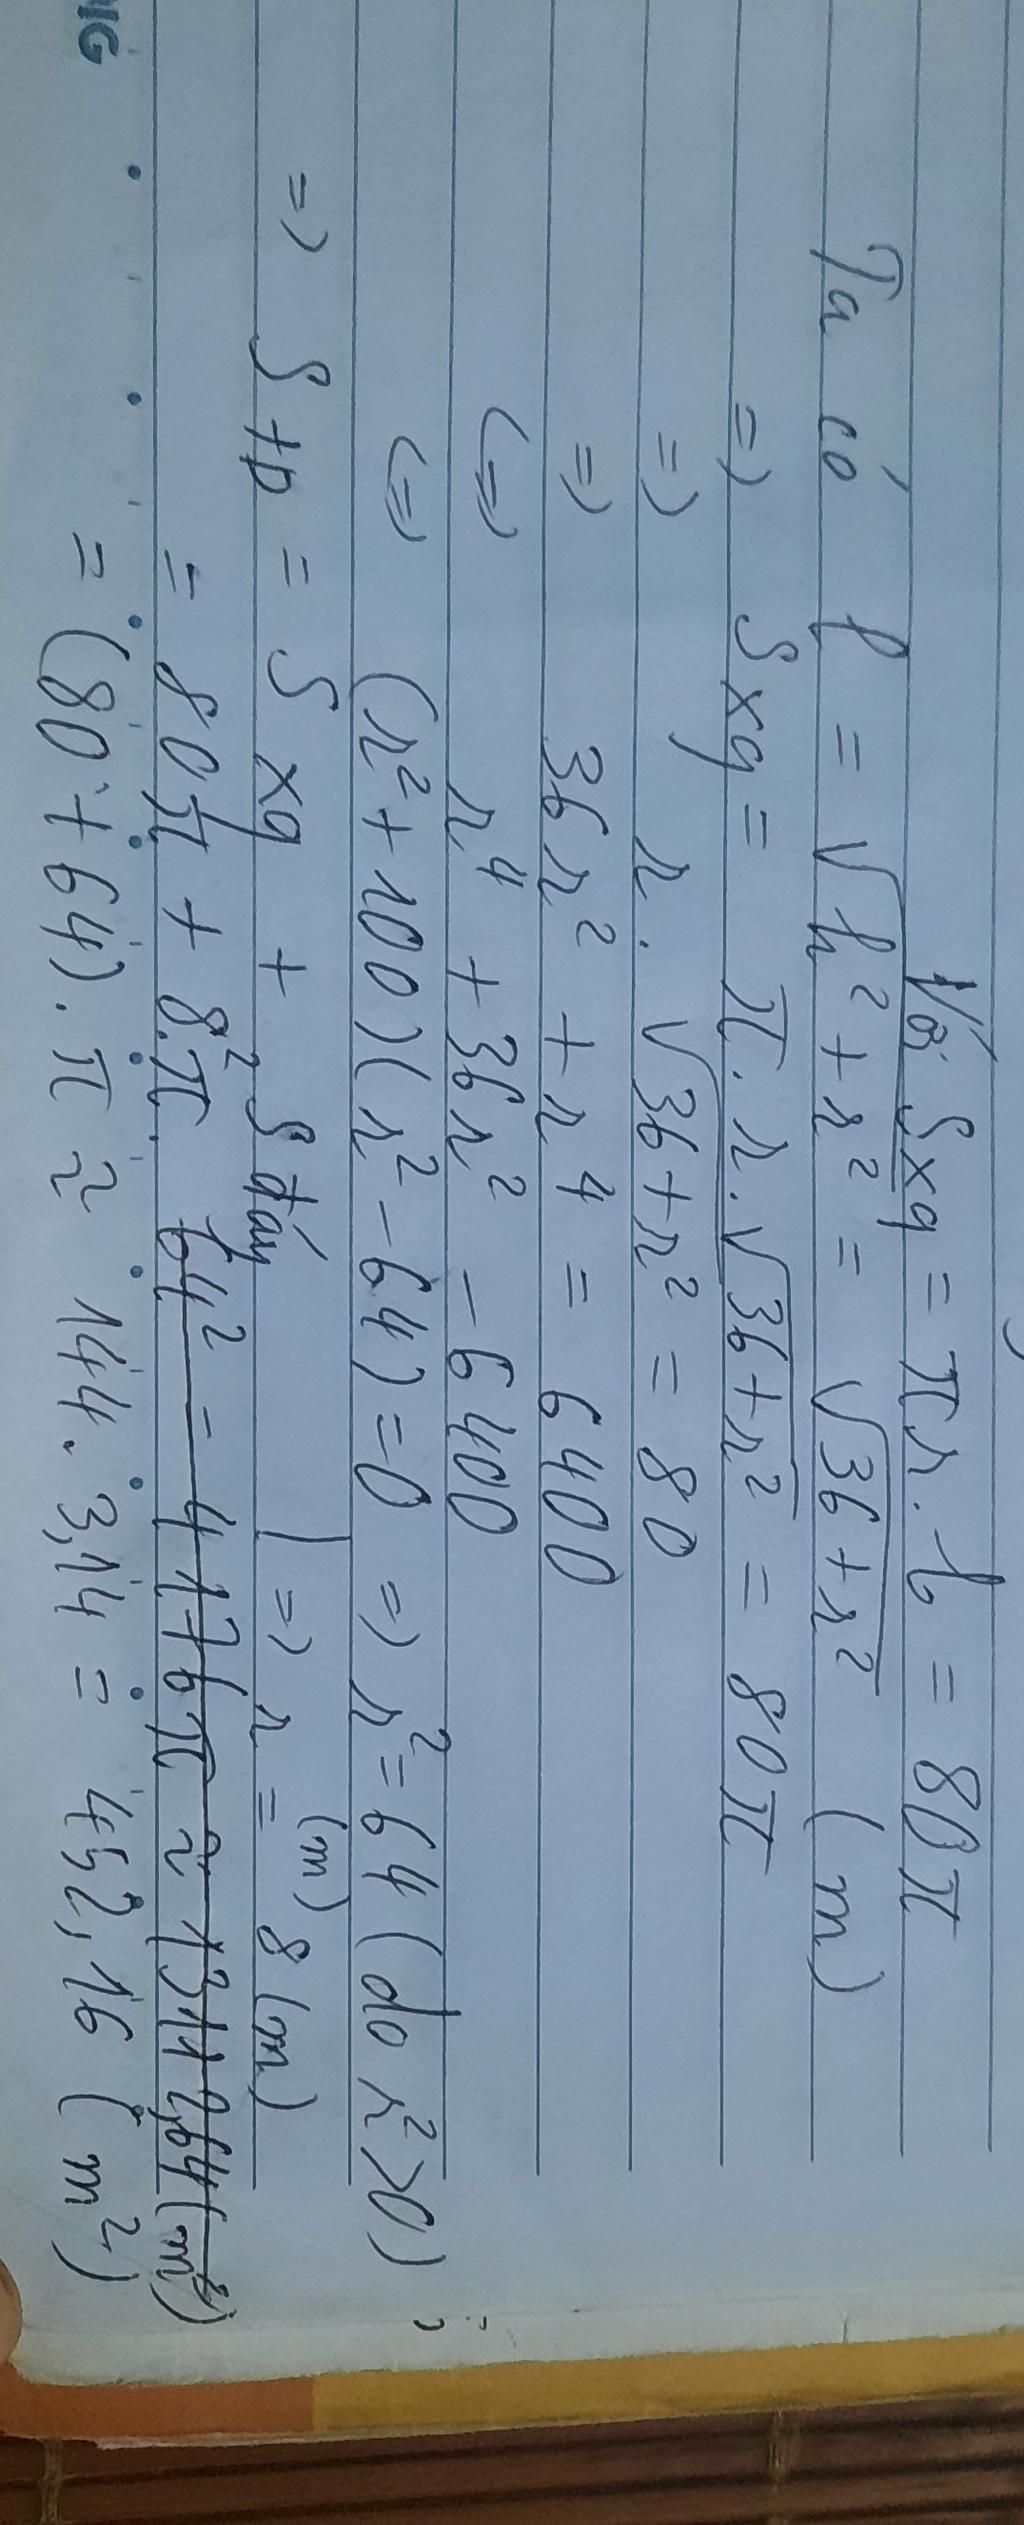 Và Sxq = πr.l = 80π
Ta có l = √h² + r² = √36 + r² (m)
=> Sxq = π.r.√36 + r² = 80π
=> r.√36 + r² = 80
=> 36r² + r⁴ = 6400
<=> r⁴ + 36r² - 6400
<=> (r² + 100)(r² - 64) = 0 => r² = 64 (do r² > 0)
(m)
=> Stp = Sxq + Sđáy | => r = 8 (m)
= 80π + 8².π 64² - 4176π ≈ 13112,64 (m²)
= (80 + 64).π ≈ 144.3,14 = 452,16 (m²)
NG